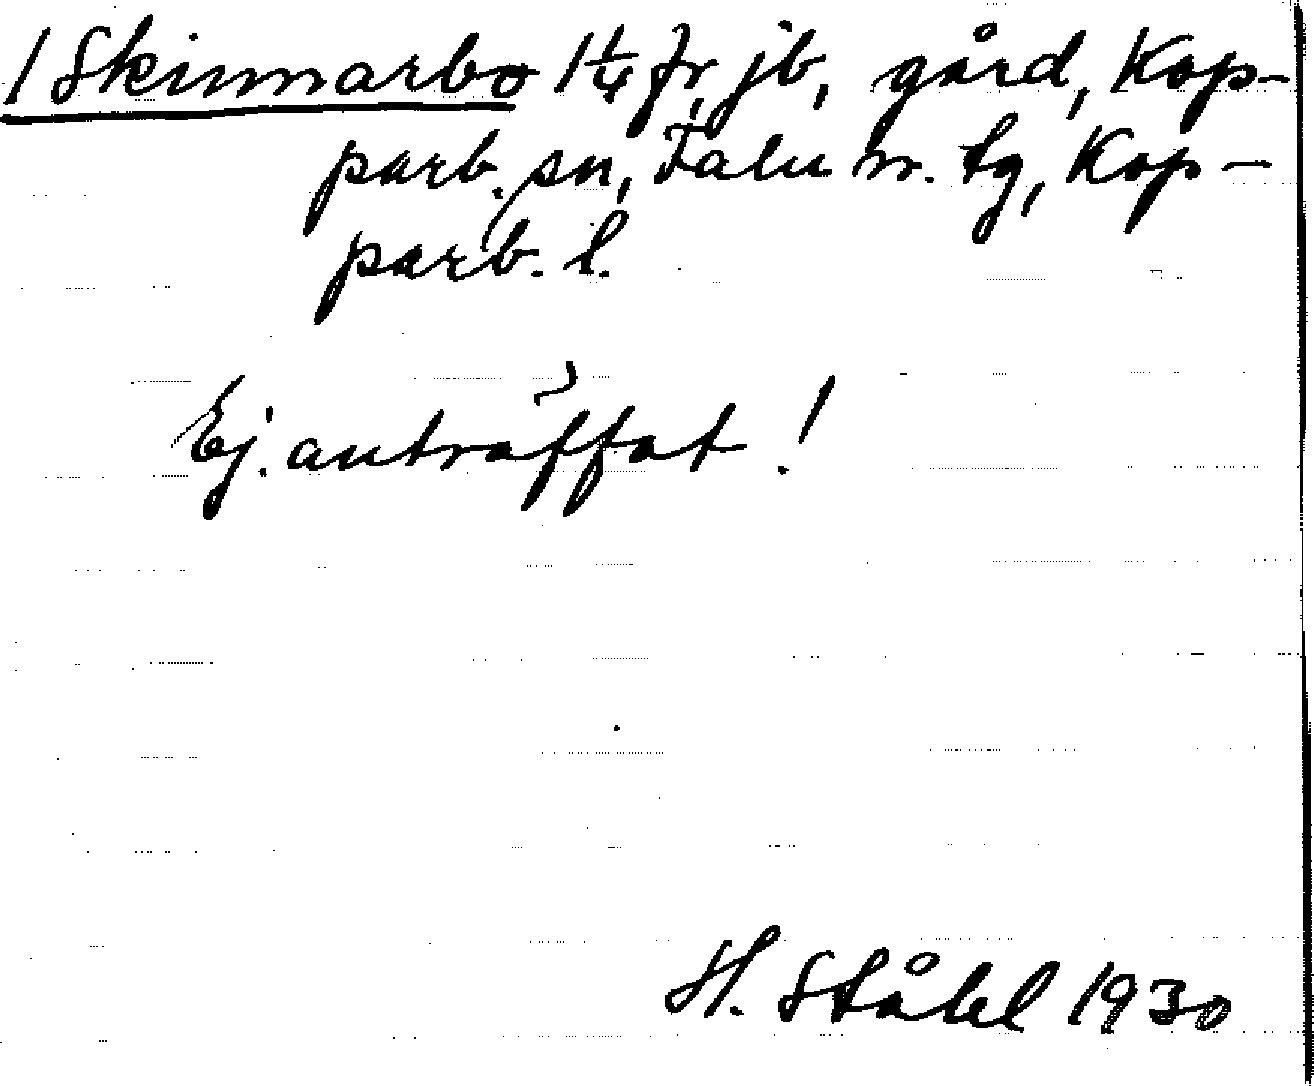 / Skinnarbo 1/4 fr, jb, gård, Kop-
parb. sn, Falu n. tg, Kop-
parb. l.
Ej anträffat!
H. Ståhl 1930